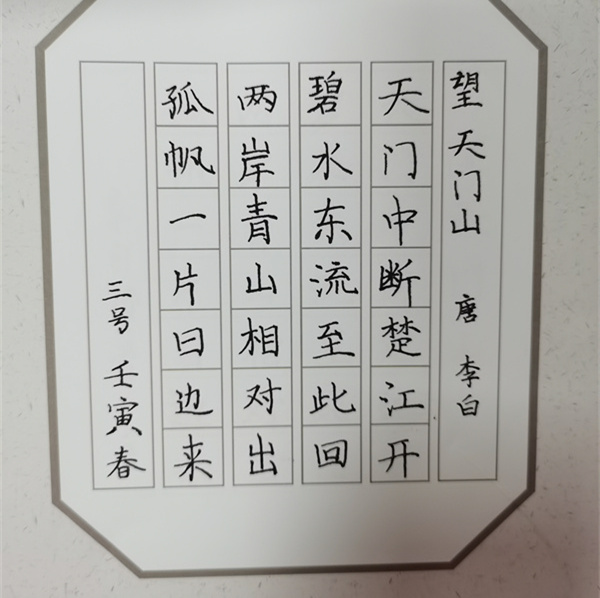 望天门山 唐 李白
天门中断楚江开
碧水东流至此回
两岸青山相对出
孤帆一片日边来
三号 壬寅春